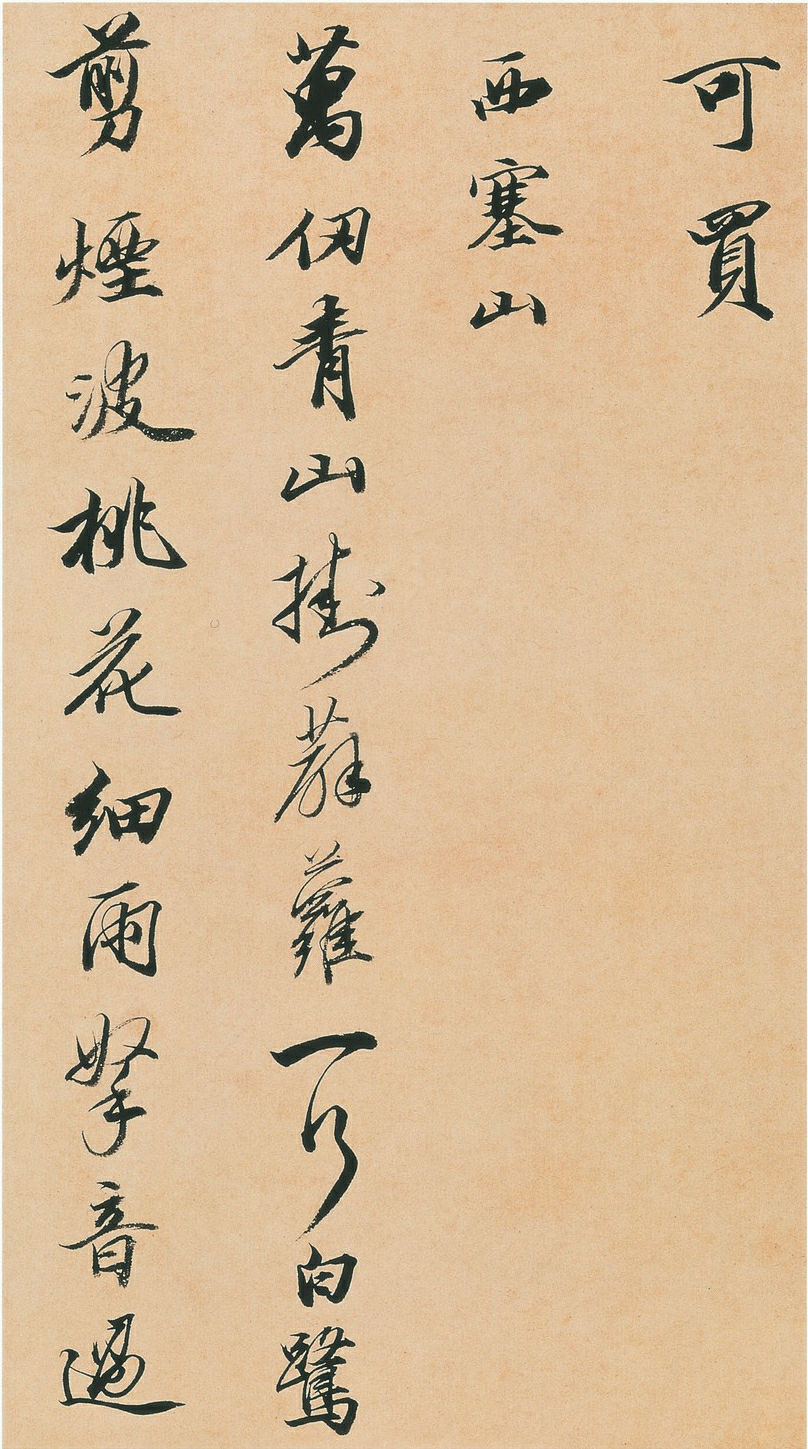 可買
西塞山
萬仞青山掛薜蘿一行白鷺
剪煙波桃花細雨拏音過